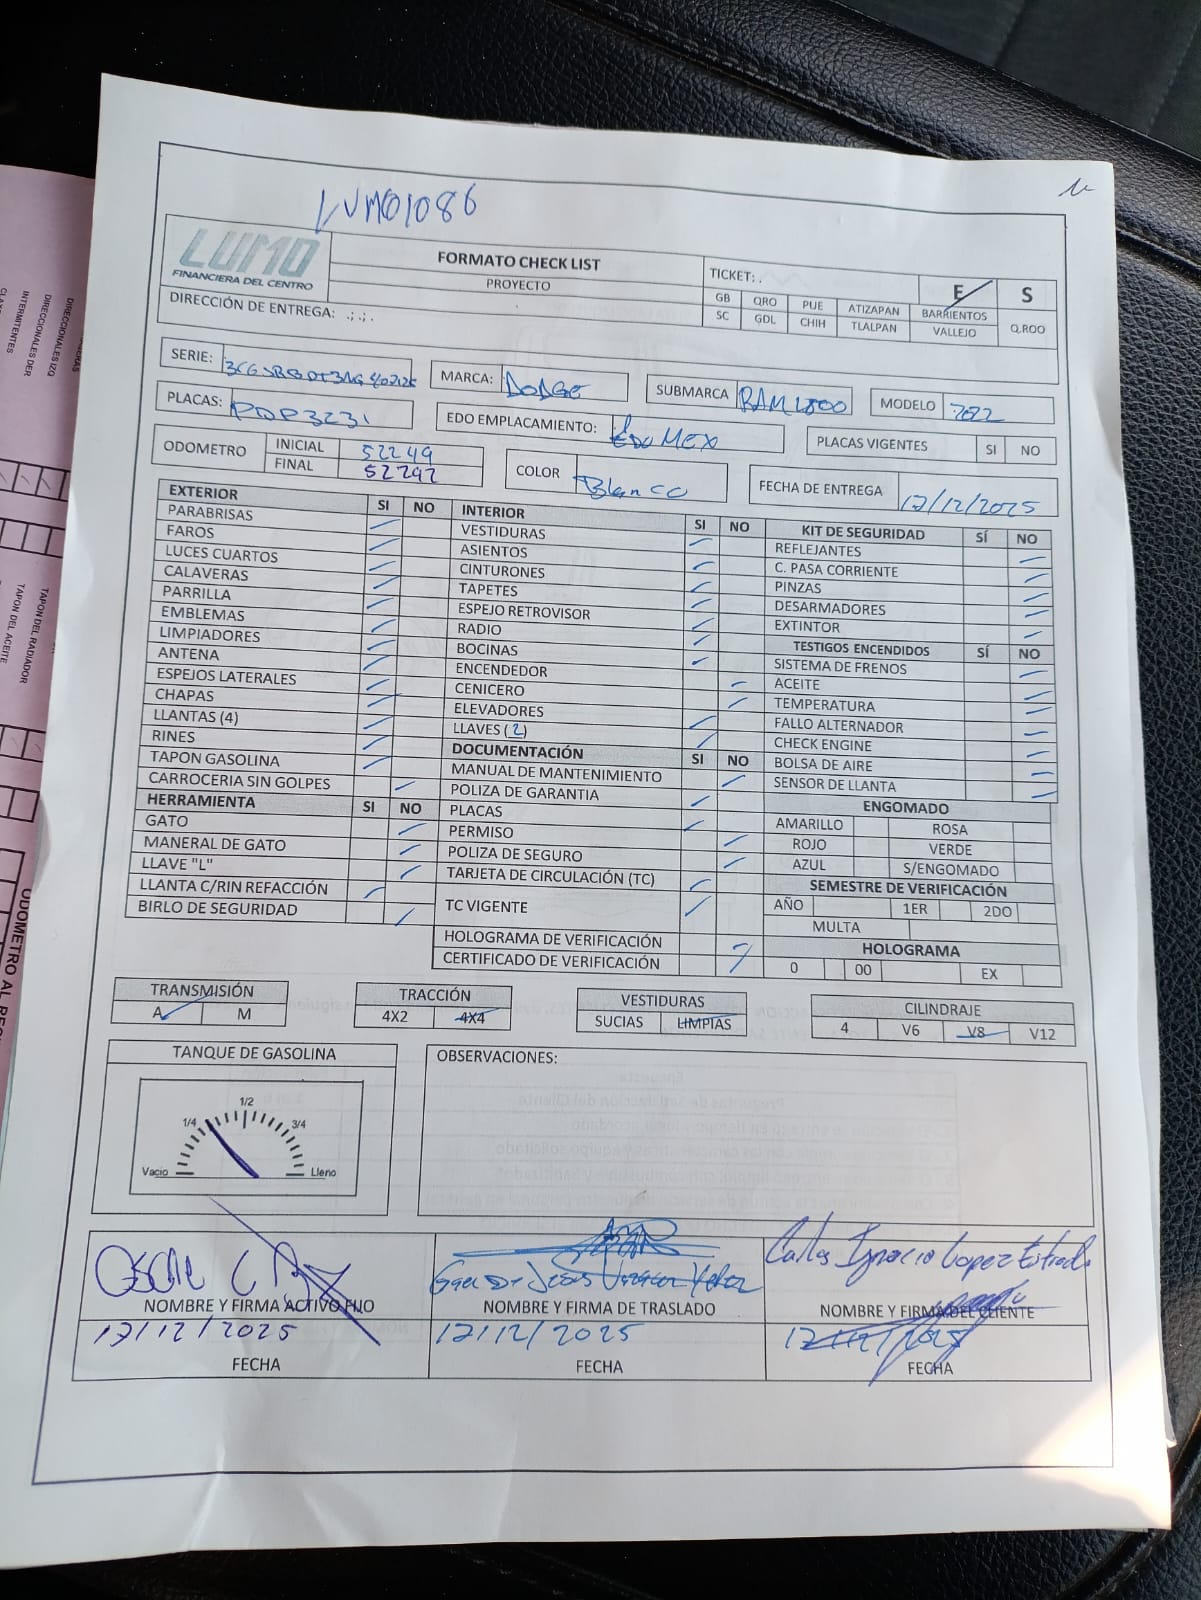 LUMO1086
LUMO
FINANCIERA DEL CENTRO
FORMATO CHECK LIST
PROYECTO
TICKET: .
E S
GB QRO PUE ATIZAPAN BARRIENTOS
SC GDL CHIH TLALPAN VALLEJO Q.ROO
DIRECCIÓN DE ENTREGA: .;.;.
SERIE:
MARCA: DODGE
SUBMARCA RAM 2500
MODELO 2022
PLACAS: PDP3231
EDO EMPLACAMIENTO: Edo MEX
PLACAS VIGENTES SI NO
ODOMETRO INICIAL 52249
FINAL 52292
COLOR Blanco
FECHA DE ENTREGA 12/12/2025
EXTERIOR SI NO
PARABRISAS
FAROS
LUCES CUARTOS
CALAVERAS
PARRILLA
EMBLEMAS
LIMPIADORES
ANTENA
ESPEJOS LATERALES
CHAPAS
LLANTAS (4)
RINES
TAPON GASOLINA
CARROCERIA SIN GOLPES
HERRAMIENTA SI NO
GATO
MANERAL DE GATO
LLAVE "L"
LLANTA C/RIN REFACCIÓN
BIRLO DE SEGURIDAD
INTERIOR SI NO
VESTIDURAS
ASIENTOS
CINTURONES
TAPETES
ESPEJO RETROVISOR
RADIO
BOCINAS
ENCENDEDOR
CENICERO
ELEVADORES
LLAVES (2)
DOCUMENTACIÓN SI NO
MANUAL DE MANTENIMIENTO
POLIZA DE GARANTIA
PLACAS
PERMISO
POLIZA DE SEGURO
TARJETA DE CIRCULACIÓN (TC)
TC VIGENTE
HOLOGRAMA DE VERIFICACIÓN
CERTIFICADO DE VERIFICACIÓN
KIT DE SEGURIDAD SÍ NO
REFLEJANTES
C. PASA CORRIENTE
PINZAS
DESARMADORES
EXTINTOR
TESTIGOS ENCENDIDOS SÍ NO
SISTEMA DE FRENOS
ACEITE
TEMPERATURA
FALLO ALTERNADOR
CHECK ENGINE
BOLSA DE AIRE
SENSOR DE LLANTA
ENGOMADO
AMARILLO ROSA
ROJO VERDE
AZUL S/ENGOMADO
SEMESTRE DE VERIFICACIÓN
AÑO 1ER 2DO
MULTA
HOLOGRAMA
0 00 EX
TRANSMISIÓN
A M
TRACCIÓN
4X2 4X4
VESTIDURAS
SUCIAS LIMPIAS
CILINDRAJE
4 V6 V8 V12
TANQUE DE GASOLINA
Vacio 1/4 1/2 3/4 Lleno
OBSERVACIONES:
NOMBRE Y FIRMA ACTIVO FIJO
12/12/2025
FECHA
NOMBRE Y FIRMA DE TRASLADO
12/12/2025
FECHA
Carlos Ignacio Lopez Estrada
NOMBRE Y FIRMA DEL CLIENTE
12/12/2025
FECHA
DIRECCIONALES IZQ
INTERMITENTES DER
TAPON DEL RADIADOR
TAPON DEL ACEITE